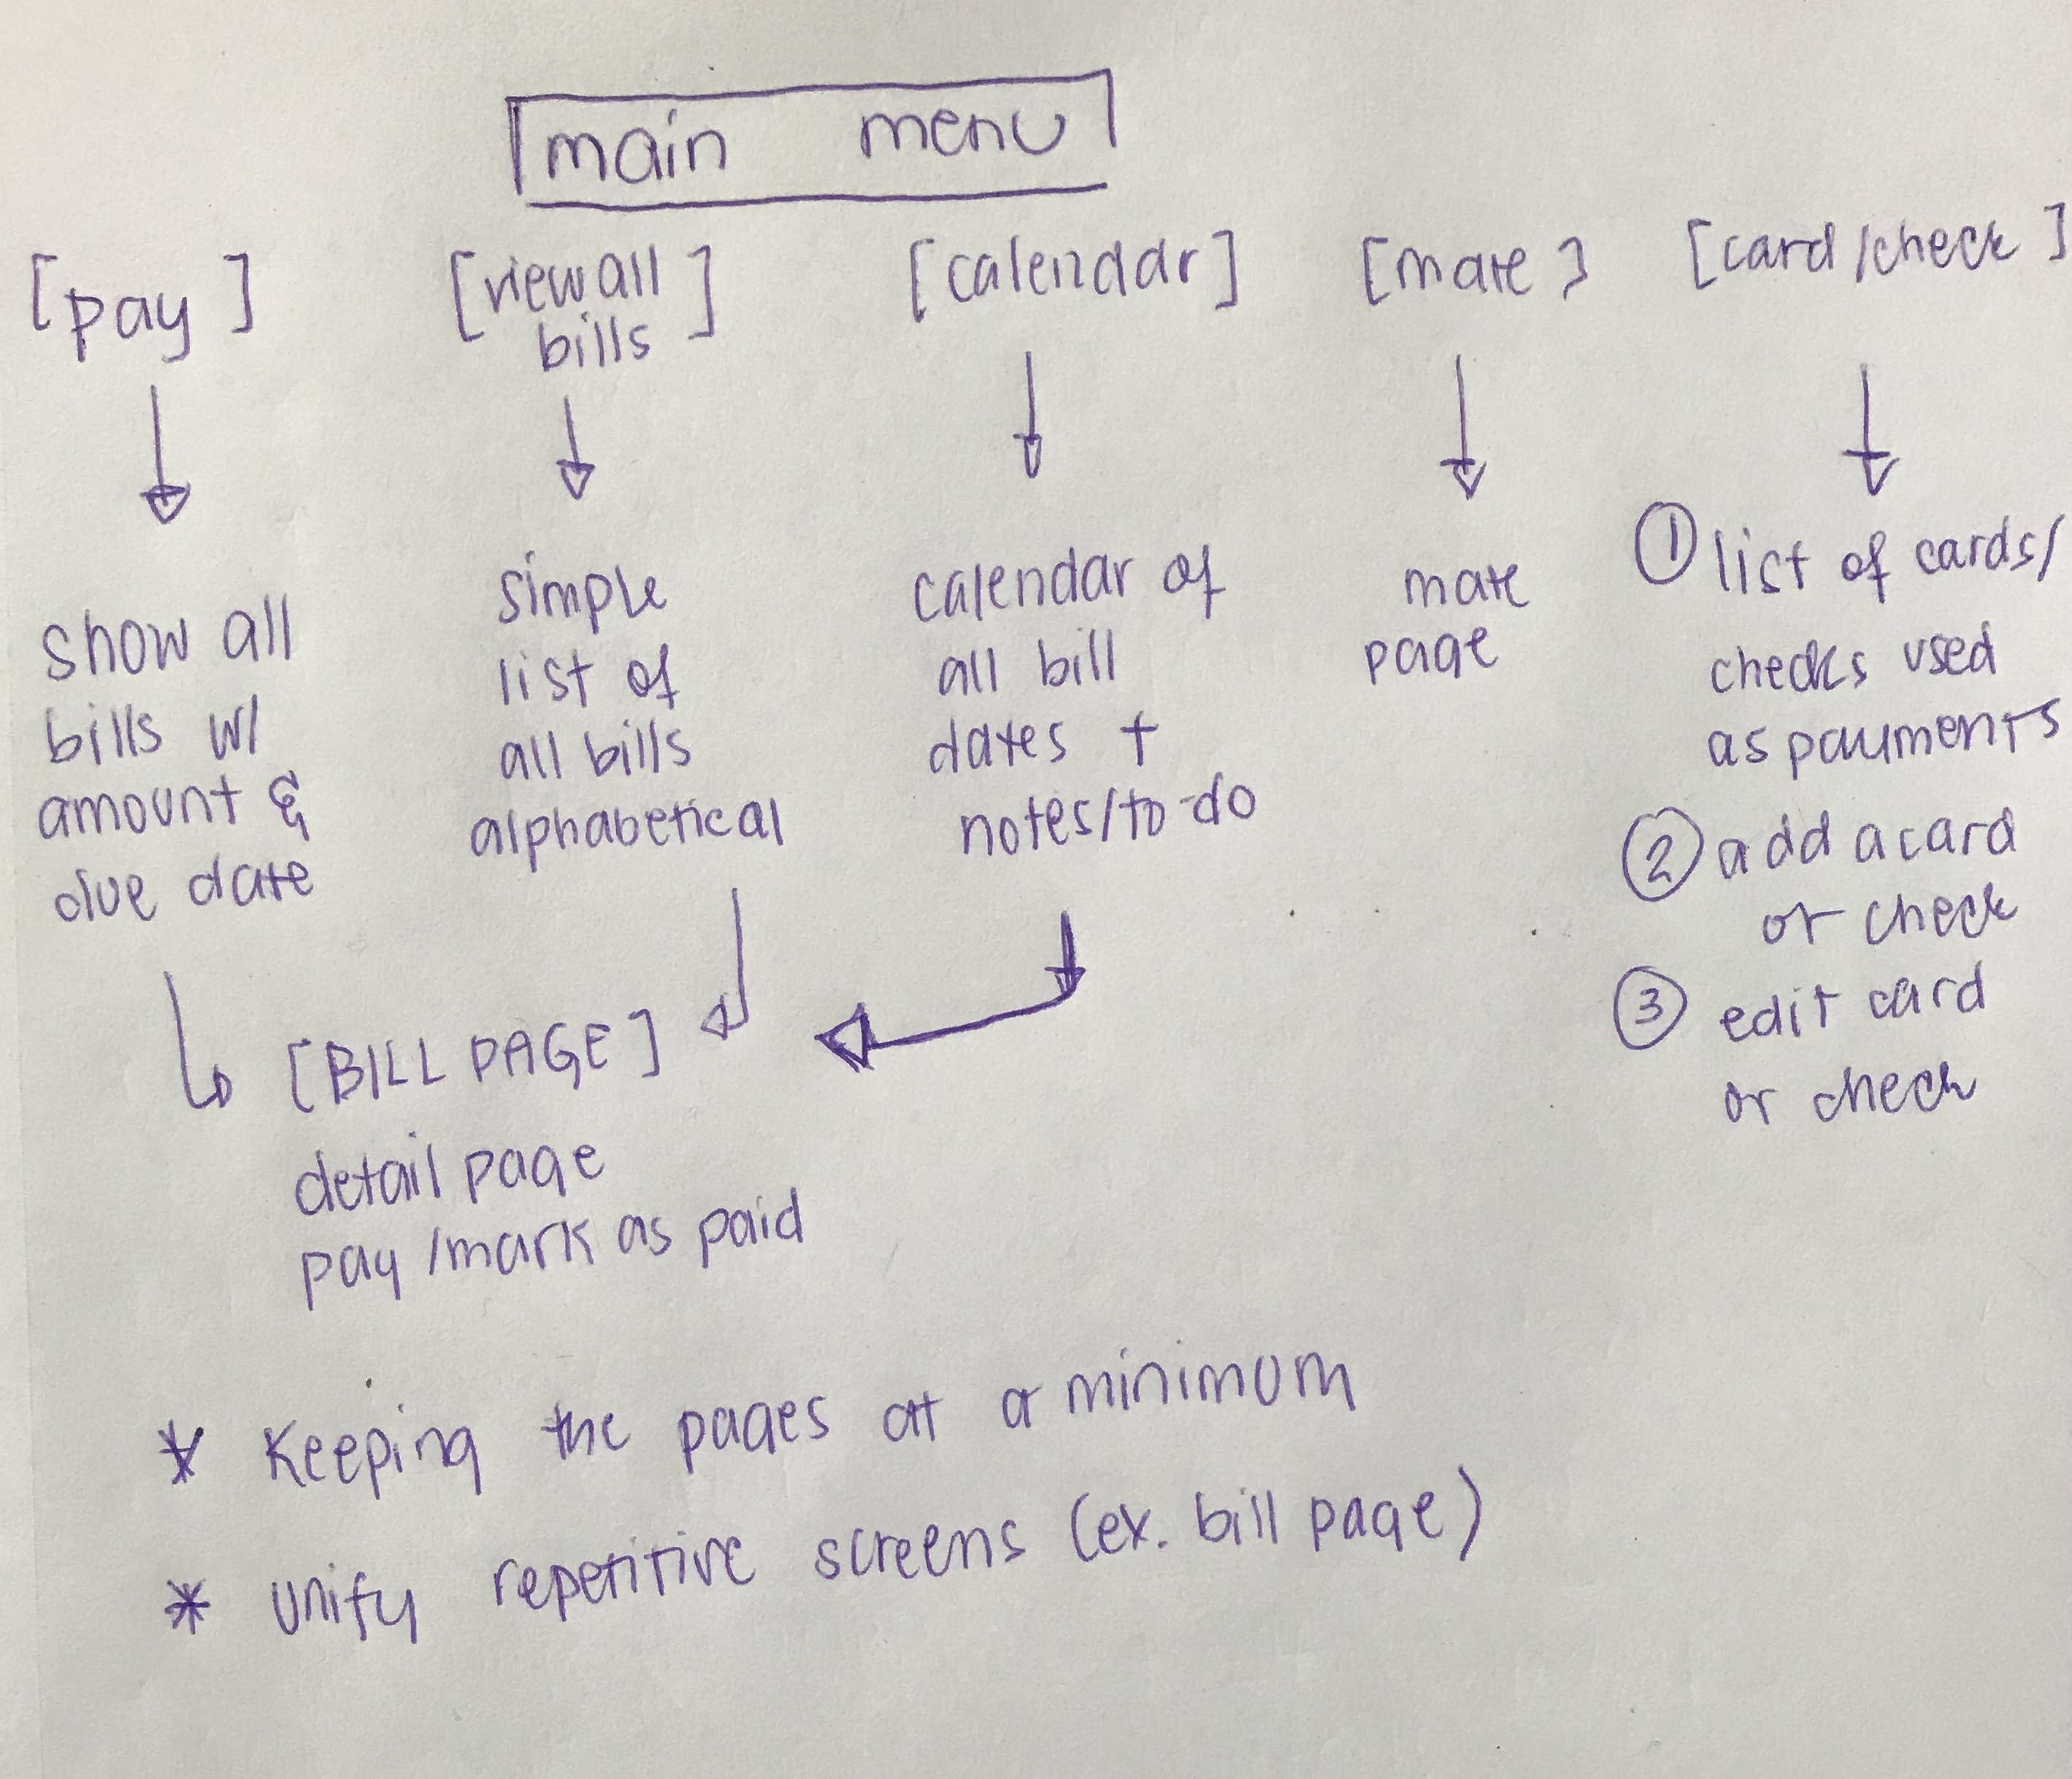 main menu
[pay]
show all
bills w/
amount &
due date
[view all
bills]
simple
list of
all bills
alphabetical
[calendar]
calendar of
all bill
dates +
notes/to-do
[mate]
mate
page
[card/check]
① list of cards/
checks used
as payments
② add a card
or check
③ edit card
or check
[BILL PAGE]
detail page
pay/mark as paid
* Keeping the pages at a minimum
* unify repetitive screens (ex. bill page)